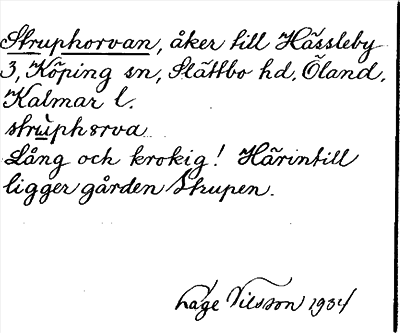 Struphorvan, åker till Hässleby
3, Köping sn, Slättbo hd, Öland,
Kalmar l.
strùphørva
Lång och krokig! Härintill
ligger gården Strupen.
Lage Nilsson 1934